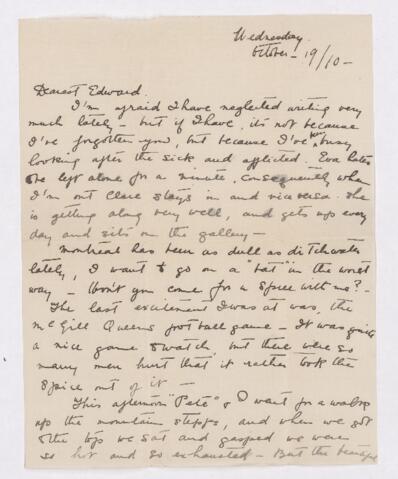 Wednesday.
October - 19/10 -
Dearest Edward.
I'm afraid I have neglected writing very
much lately - but if I have, it's not because
I've forgotten you, but because I've been busy
looking after the sick and afflicted. Eva hates
be left alone for a minute, consequently when
I'm out Clare stays in and vice versa. She
is getting along very well, and gets up every
day and sits on the gallery -
Montreal has been as dull as ditchwater
lately, I want to go on a "bat" in the worst
way - Won't you come for a spree with me? -
The last excitement I was at was, the
McGill Queens football game - It was quite
a nice game to watch, but there were so
many men hurt that it rather took the
spice out of it -
This afternoon "Pete" & I went for a walk
up the mountain steps, and when we got
to the top we sat and gasped we were
so hot and so exhausted - But the